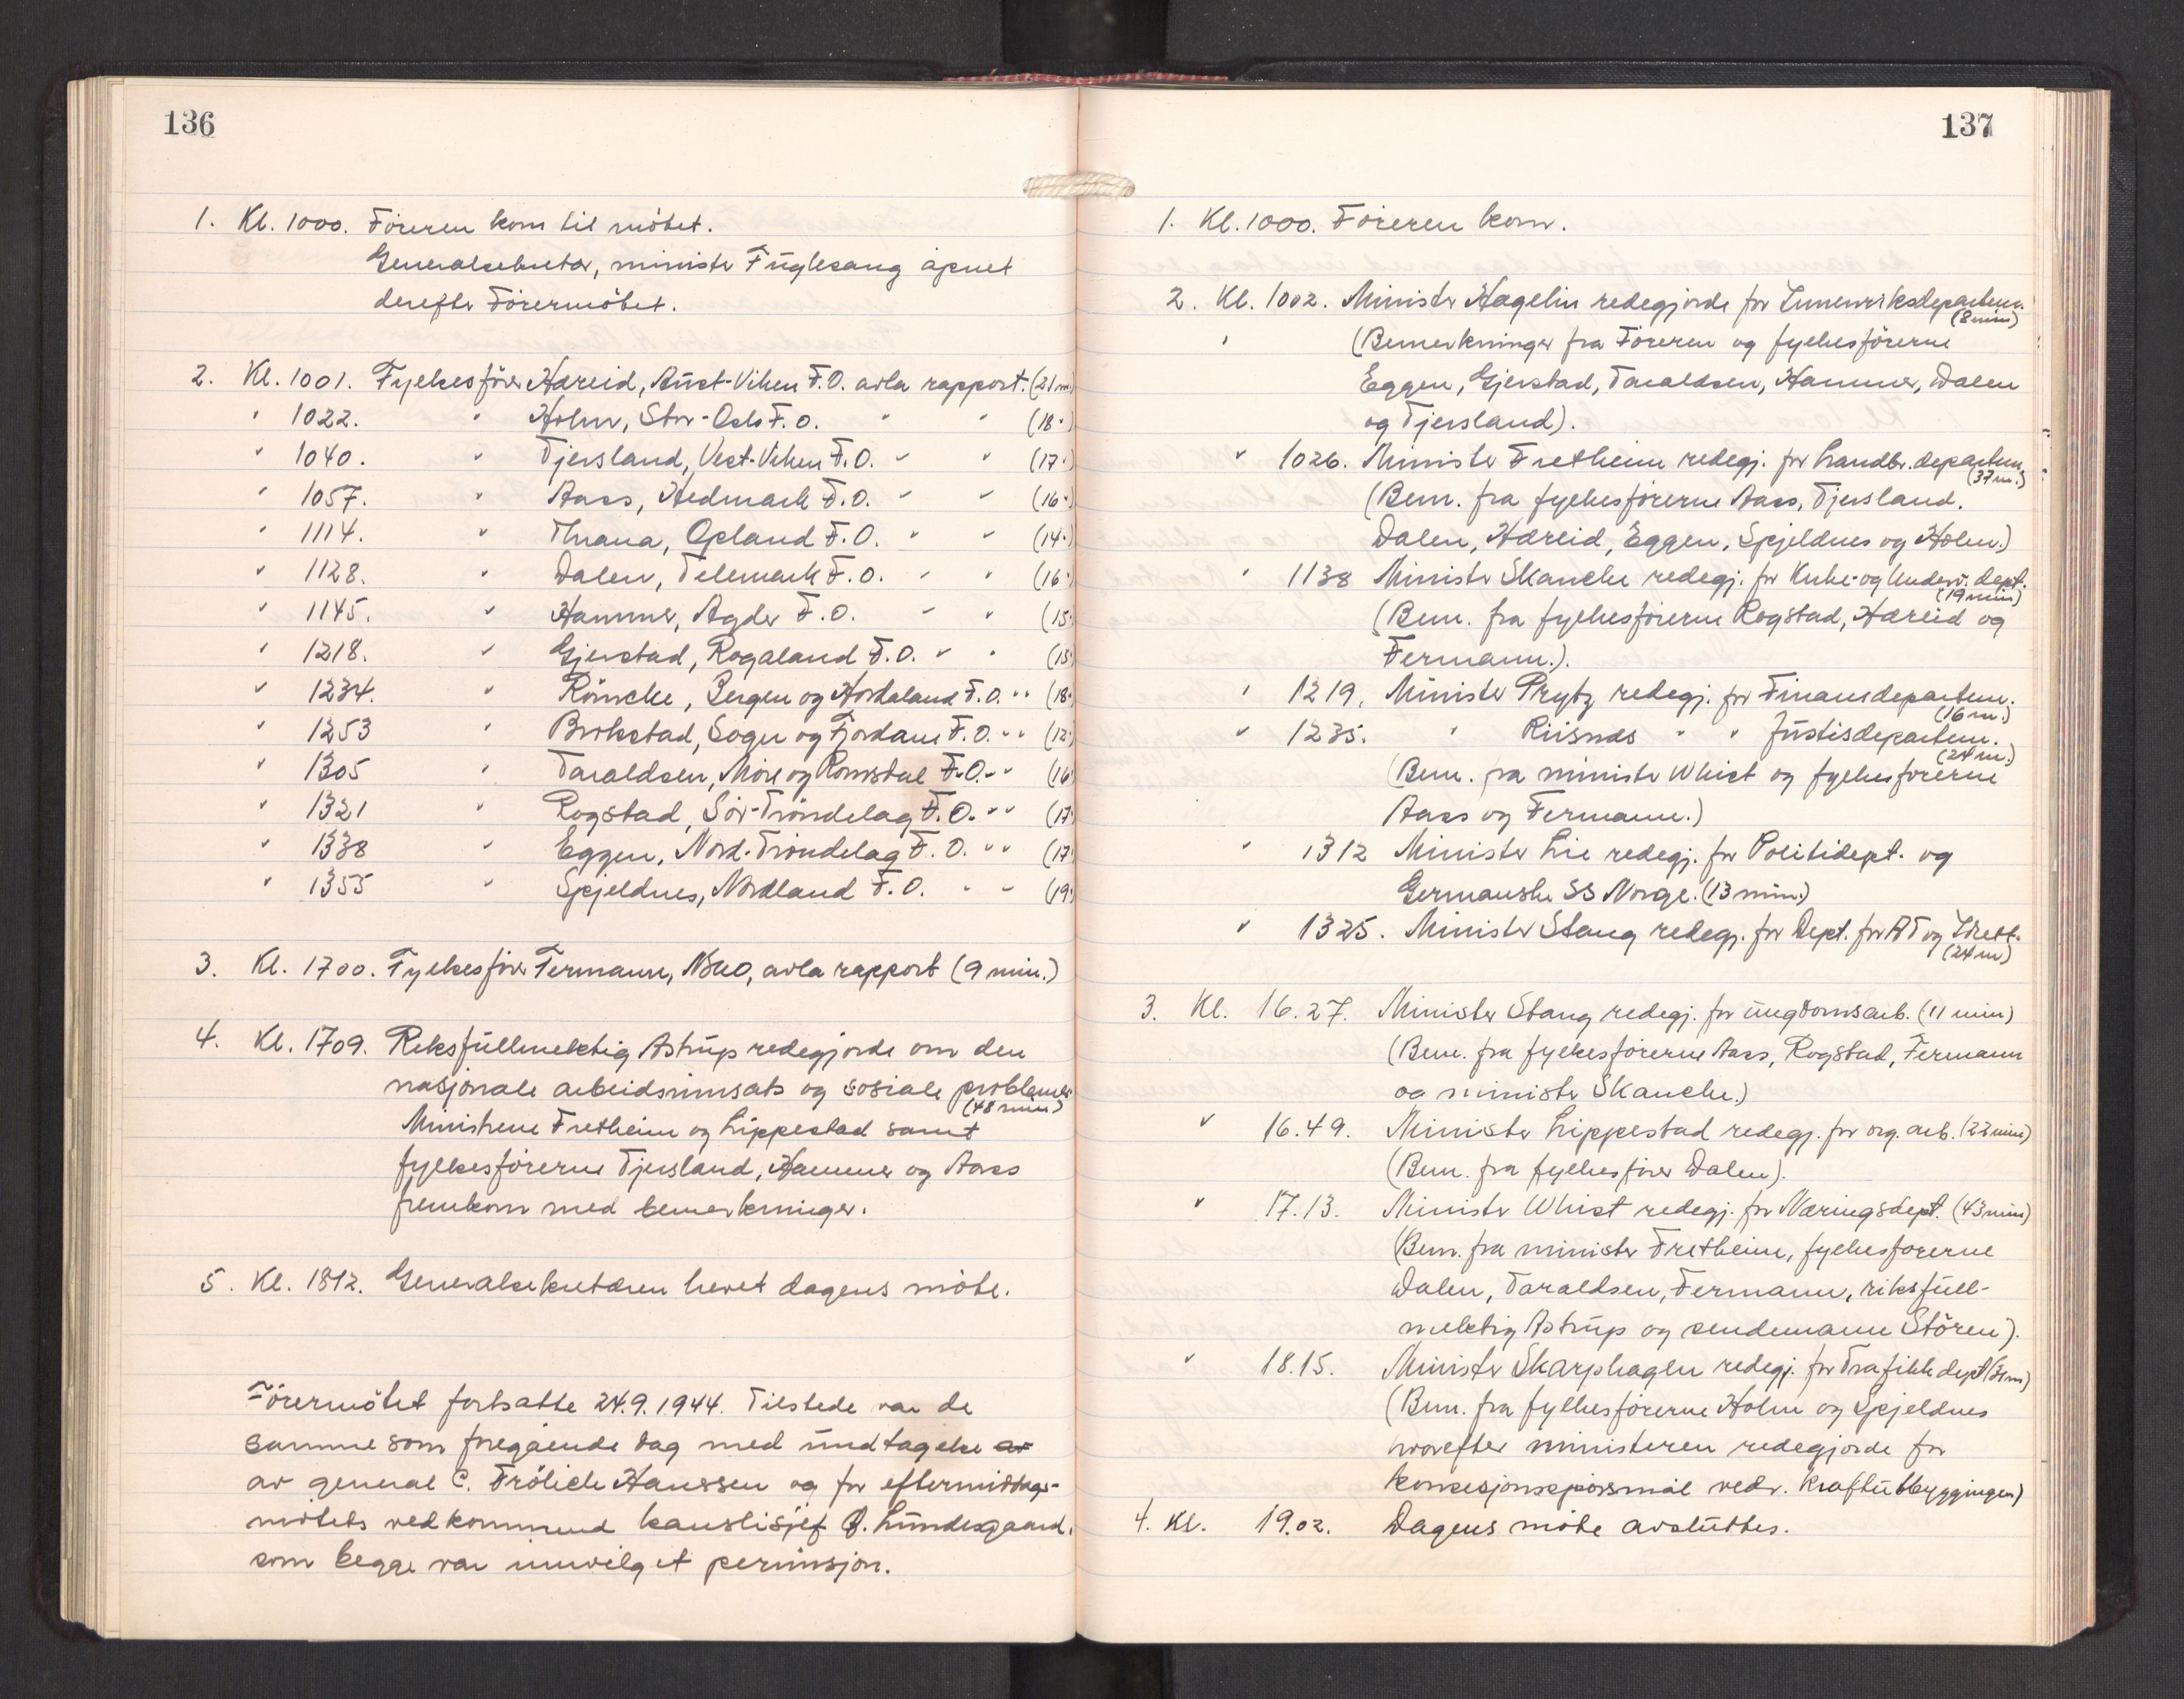 136
1. Kl. 1000. Föreren kom til mötet.
Generalsekretær, minister Fuglesang åpnet
derefter Förermötet.
2. Kl. 1001. Fylkesförer Hæreid, Aust-Viken F.O. avla rapport. (21 m)
" 1022. " Holm, Stor-Oslo F.O. " " (18 ")
" 1040. " Tjersland, Vest-Viken F.O. " " (17 ")
" 1057. " Aass, Hedmark F.O. " " (16 ")
" 1114. " Thrana, Opland F.O. " " (14 ")
" 1128. " Dalen, Telemark F.O. " " (16 ")
" 1145. " Hammer, Agder F.O. " " (15
" 1218. " Gjerstad, Rogaland F.O. " " (15
" 1234. " Röncke, Bergen og Hordaland F.O. " " (18
" 1253 " Brokstad, Sogn og Fjordane F.O. " " (12
" 1305 " Taraldsen, Möre og Romsdal F.O. " " (16
" 1321 " Rogstad, Sör-Tröndelag F.O. " " (17
" 1338 " Eggen, Nord-Tröndelag F.O. " " (17
" 1355 " Spjeldnes, Nordland F.O. " " (19
3. Kl. 1700. Fylkesförer Fermann, NSUO, avla rapport (9 min.)
4. Kl. 1709. Riksfullmektig Astrup redegjorde om den
nasjonale arbeidsinnsats og sosiale problemer
(48 min)
Ministrene Fretheim og Lippestad samt
fylkesförerne Tjersland, Hammer og Aass
fremkom med bemerkninger.
5. Kl. 1812. Generalsekretæren hevet dagens möte.
Förermötet fortsatte 24.9.1944. Tilstede var de
samme som foregående dag med undtagelse av
av general C. Frölich Hanssen og for eftermiddags-
mötets vedkommend kanslisjef Lundesgaard.
som begge var innvilget permisjon.
137
1. Kl. 1000. Föreren kom.
2. Kl. 1002. Minister Hagelin redegjorde for Innenriksdepartem.
(8 min)
(Bemerkninger fra Föreren og fylkesförerne
Eggen, Gjerstad, Taraldsen, Hammer, Dalen
og Tjersland).
" 1026. Minister Fretheim redegj. for Landbr.departem.
(37 m.)
(Bem. fra fylkesförerne Aass, Tjersland.
Dalen, Hæreid, Eggen, Spjeldnes og Holm.)
" 1138 Minister Skancke redegj. for Kirke- og Underv. dept.
(19 min)
(Bem. fra fylkesförerne Rogstad, Hæreid og
Fermann.).
" 1219. Minister Prytz redegj. for Finansdepartem.
(16 m.)
" 1235. " Riisnæs " " Justisdepartem.
(24 m.)
(Bem. fra minister Whist og fylkesförerne
Aass og Fermann.)
" 1312 Minister Lie redegj. for Politidept. og
Germanske SS Norge. (13 min.)
" 1325. Minister Stang redegj. for Dept. for AT og Idrett.
(24 m)
3. Kl. 16.27. Minister Stang redegj. for ungdomsarb. (11 min)
(Bem. fra fylkesförerne Aass, Rogstad, Fermann
og minister Skancke.)
" 16.49. Minister Lippestad redegj. for org. arb. (22 min)
(Bem. fra fylkesförer Dalen).
" 17.13. Minister Whist redegj. for Næringsdept. (43 min)
(Bem. fra minister Fretheim, fylkesförerne
Dalen, Taraldsen, Fermann, riksfull-
mektig Astrup og sendemann Stören).
" 18.15. Minister Skarphagen redegj. for Trafikkdept (31 m)
(Bem. fra fylkesförerne Holm og Spjeldnes
hvorefter ministeren redegjorde for
konsesjonsspörsmål vedr. kraftutbyggingen)
4. Kl. 19.02. Dagens möte avsluttes.